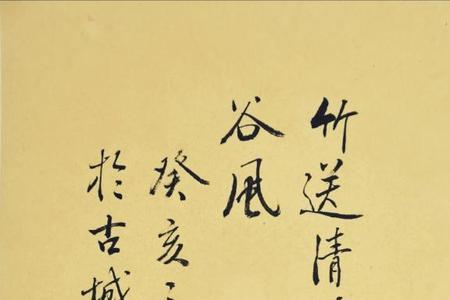 竹送清
谷風
癸亥
於古城